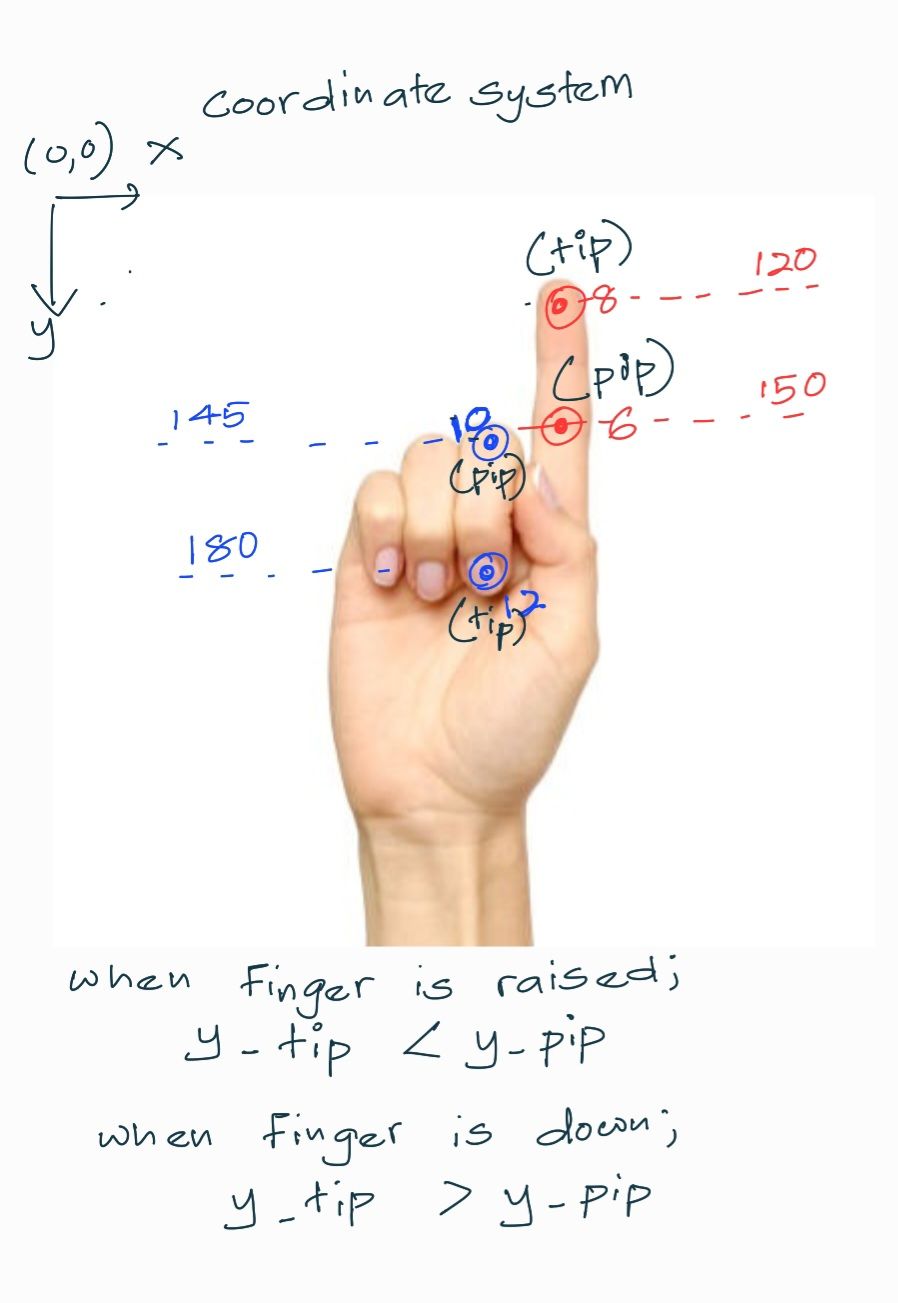 coordinate system
(0,0) x
y
(tip)
8 120
(pip)
6 150
145 10
(pip)
180
12
(tip)
when finger is raised;
y-tip < y-pip
when finger is down;
y-tip > y-pip